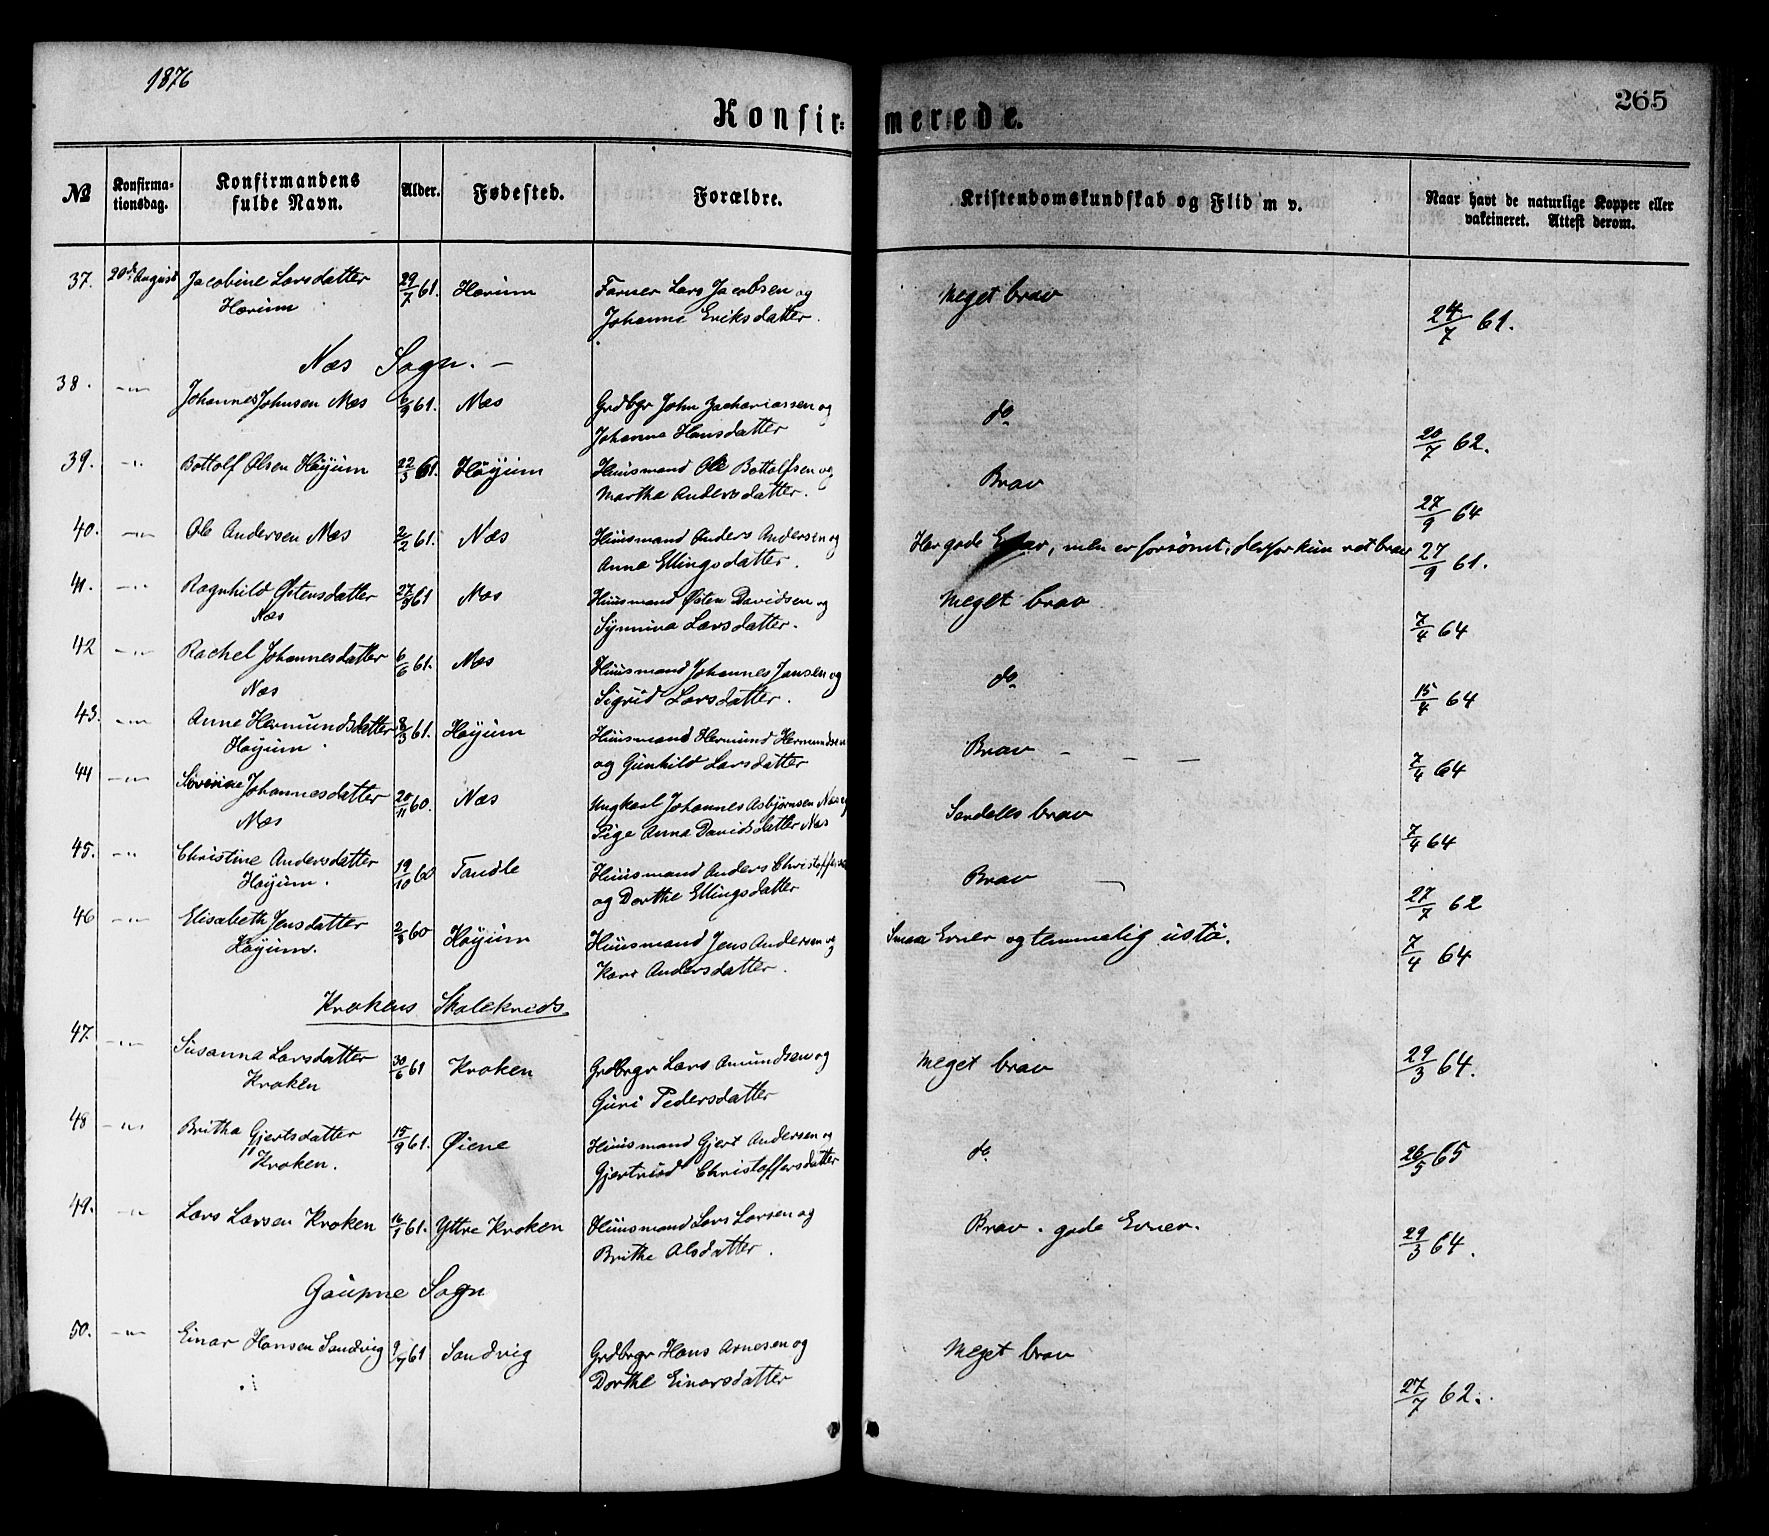 1876
265
Konfir=merede.
№ Konfirma-tionsdag. Konfirmandens fulde Navn. Alder. Fødested. Forældre. Kristendomskundskab og Flid m v. Naar havt de naturlige Kopper eller vakcineret. Attest derom.
37. 20de August Jacobine Larsdatter 29/7 61. Hærum Former Lars Jacobsen og Meget brav 24/7 61.
Hærum Johanne Eriksdatter.
Næs Sogn. –
38. –"– Johannes Johnsen Næs 6/9 61. Næs Grdbgr John Zachariassen og do 20/7 62.
Johanna Hansdatter
39. –"– Bottolf Olsen Høyum 22/3 61. Høyum Huusmand Ole Bottolfsen og Brav 27/9 64
Martha Andersdatter.
40. –"– Ole Andersen Næs 2/2 61. Næs Huusmand Anders Andersen og Har gode Evner, men er forsømt, derfor kun ret brav 27/9 61.
Anna Ellingsdatter.
41. –"– Ragnhild Østensdatter 27/3 61 Næs Huusmand Østen Davidsen og Meget brav 7/4 64
Næs Synniva Larsdatter.
42 –"– Rachel Johannesdatter 6/6 61. Næs Huusmand Johannes Jansen og do 15/4 64
Næs Sigrid Larsdatter.
43. –"– Anne Hermundsdatter 8/3 61. Høyum Huusmand Hermund Hermundsen Brav – – – 7/4 64
Høyum og Gunhild Larsdatter
44 –"– Johannesdatter 20/11 60. Næs Ungkarl Johannes Asbjørnsen Næs og Særdeles brav 7/4 64
Næs Pige Anna Davidsdatter Næs
45. –"– Christine Andersdatter 19/10 60 Tandle Huusmand Anders Christoffersen Brav 27/7 62
Høyum. og Dorthe Ellingsdatter
46 –"– Elisabeth Jensdatter 2/3 60 Høyum Huusmand Jens Andersen og Smaa Evner og temmelig ustø. 7/4 64
Høyum. Kari Andersdatter.
Krokens Skolekreds.
47. –"– Susanna Larsdatter 30/6 61 Kroken Grdbrgr Lars Amundsen og Meget brav 29/3 64.
Kroken Guri Pedersdatter
48 –"– Britha Gjertsdatter 15/9 61. Øiene Huusmand Gjert Andersen og do 26/5 65
Kroken. Gjertrud Christoffersdatter
49. –"– Lars Larsen Kroken 16/1 61. Yttre Kroken Huusmand Lars Larsen og Brav. gode Evner. 29/3 64.
Brithe Olsdatter.
Gaupne Sogn
50. –"– Einar Hansen Sandvig 9/7 61 Sandvig Grdbrgr Hans Arnesen og Meget brav 27/7 62.
Dorthe Einarsdatter